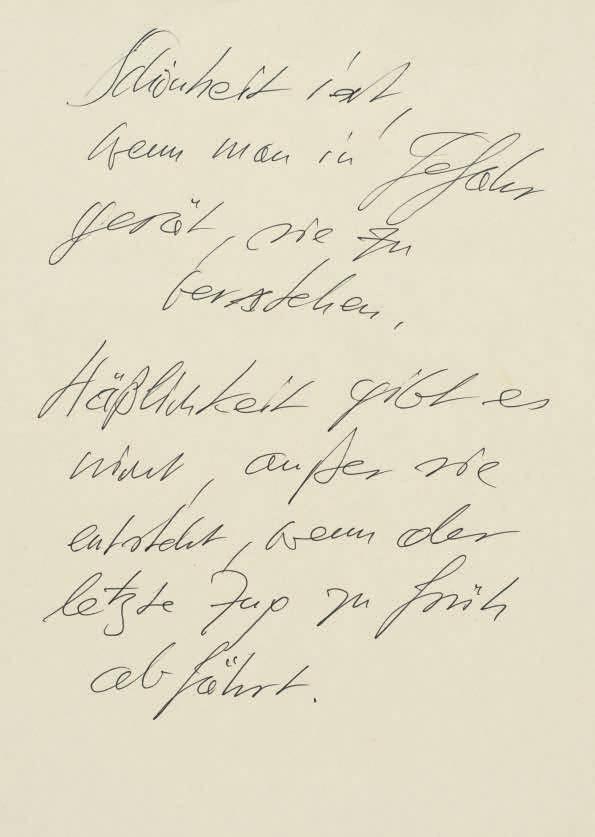 Schönheit ist,
wenn man in Gefahr
gerät, sie zu
verstehen,
Häßlichkeit gibt es
nicht, außer sie
entsteht, wenn der
letzte Zug zu früh
abfährt.